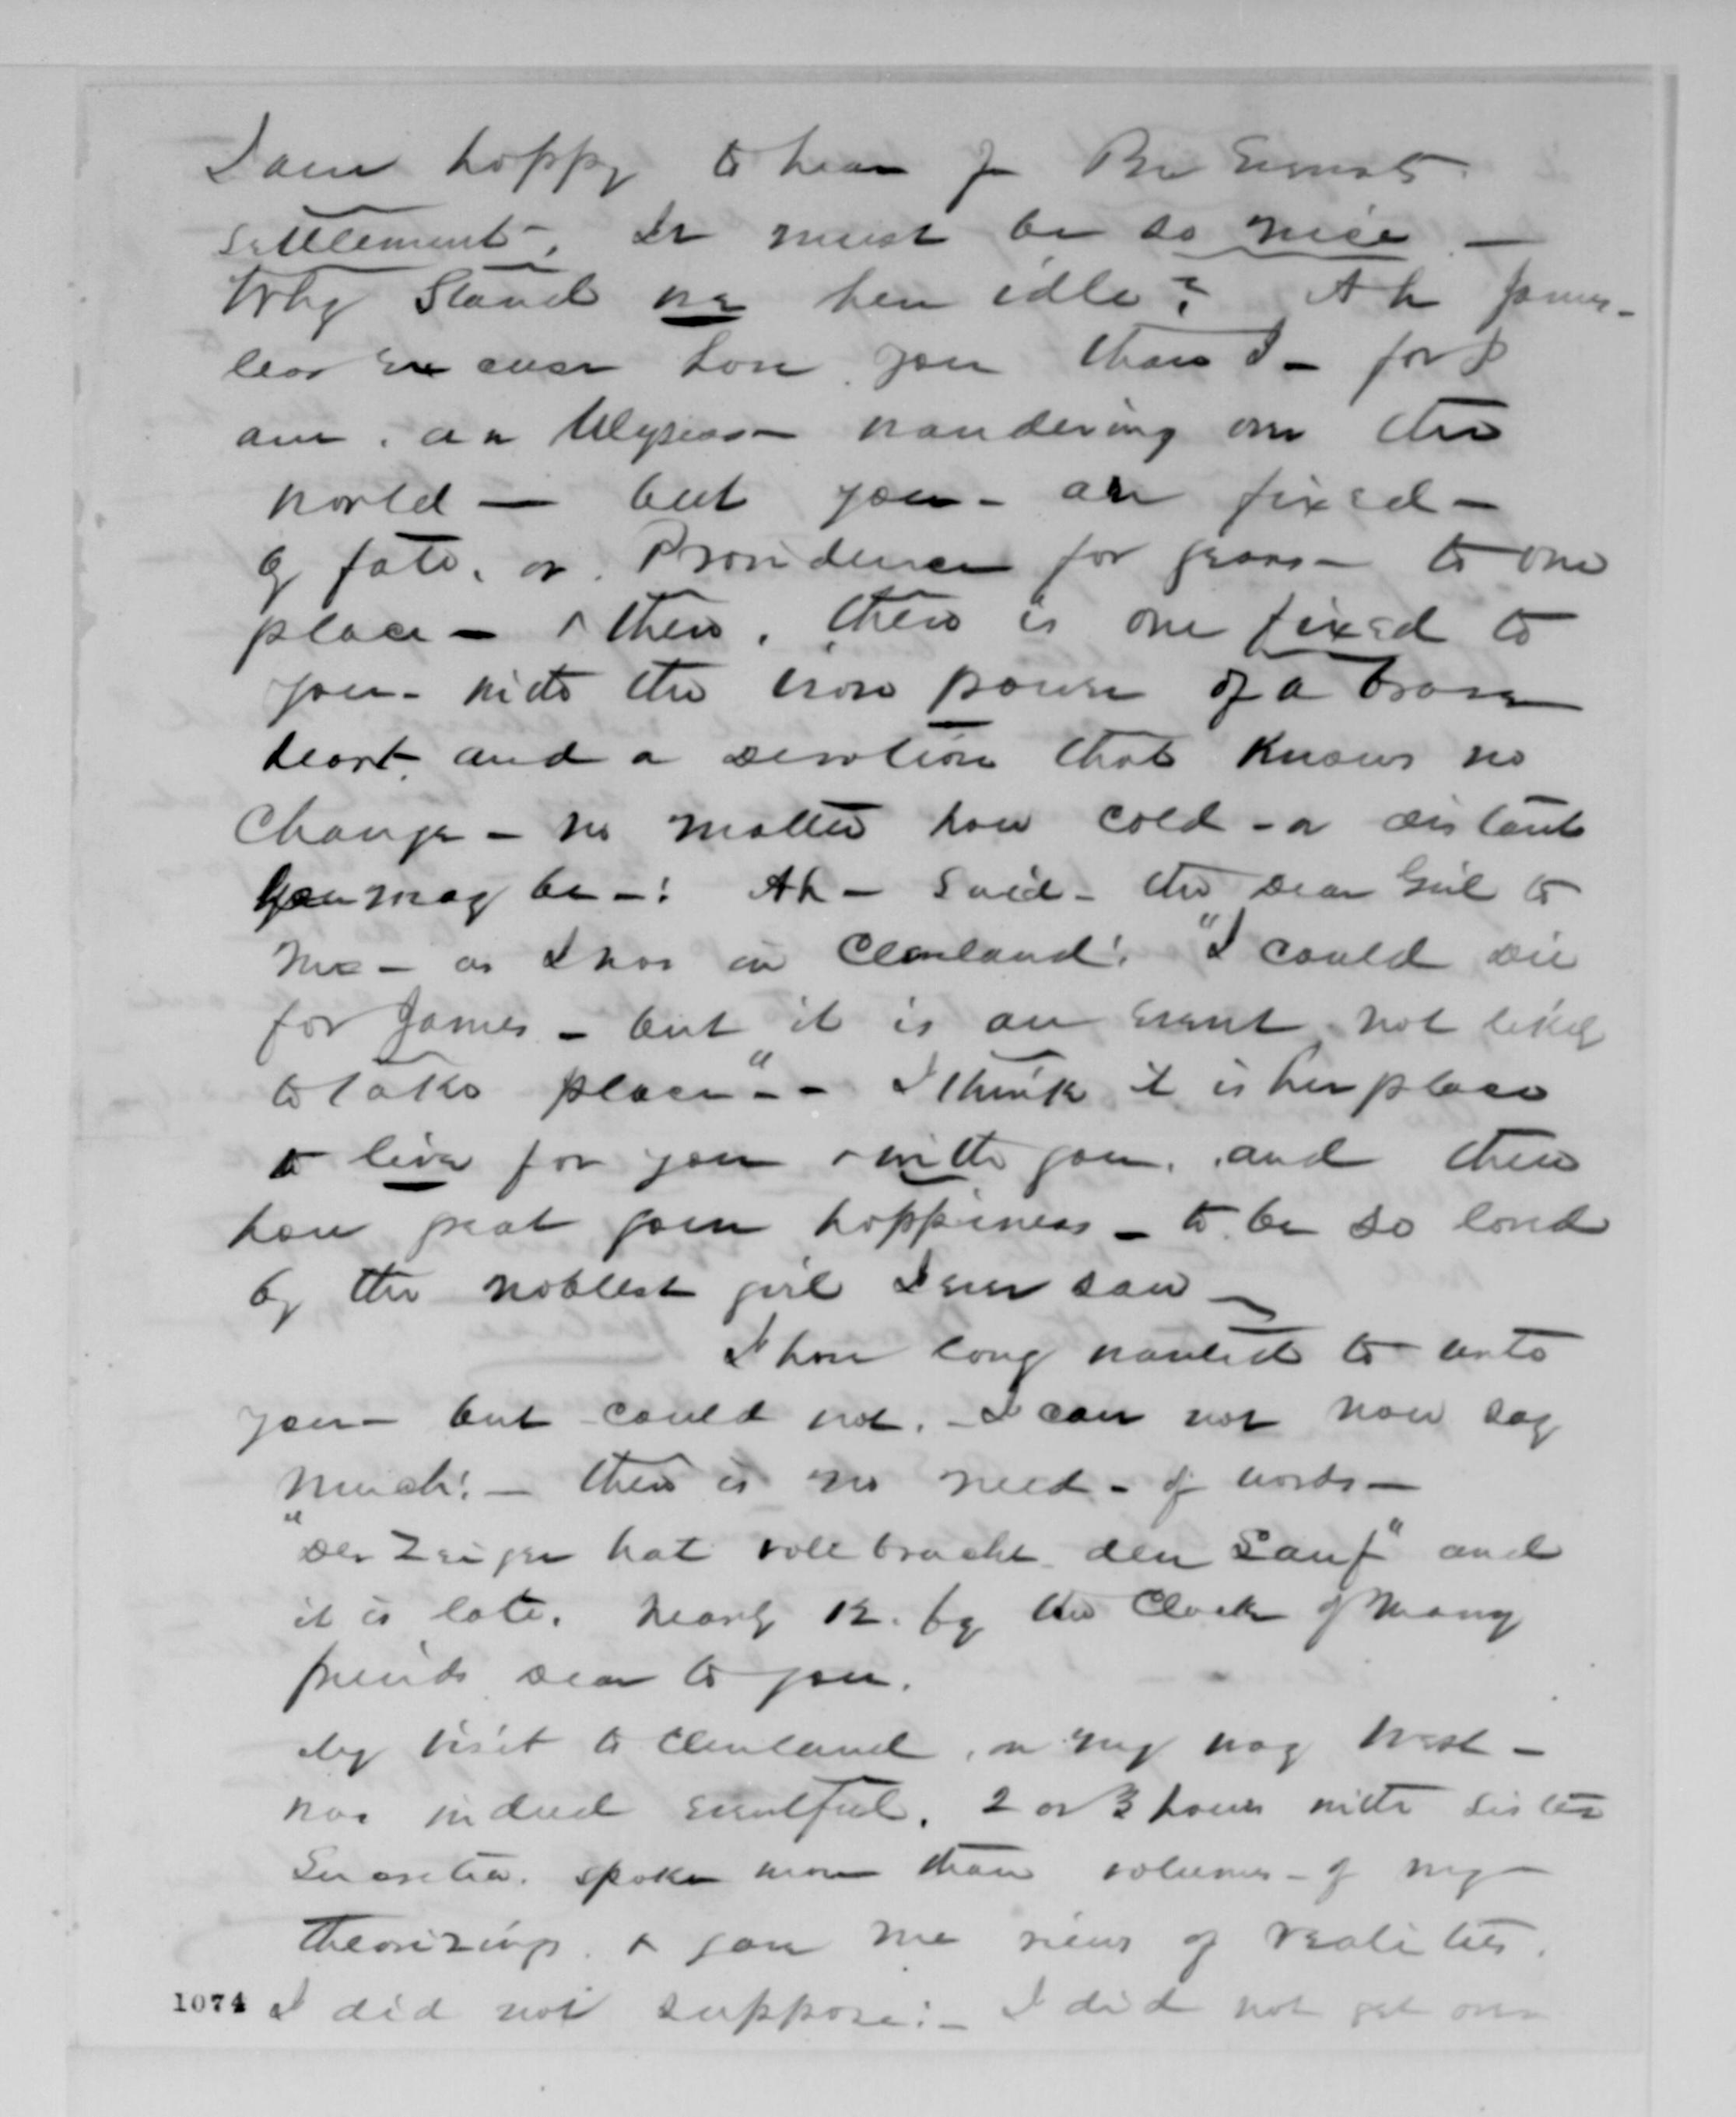 I am happy to hear of Bro Everest's
settlement. It must be so nice —
Why stand we here idle? Ah James —
less excuse have you than I — for I
am an Ulysses — wandering over the
world — but you — are fixed —
by fate, or Providence for years — to one
place — & then, there is one fixed to
you — with the iron power of a brave
heart and a devotion that knows no
change — no matter how cold — or distant
you may be —! Ah — said — the dear Girl to
me — as I was in Cleveland! "I could die
for James — but it is an event not likely
to take place" — I think it is her place
to live for you & with you, and then
how great your happiness — to be so loved
by the noblest girl I ever saw —
I have long wanted to write
you — but could not. — I can not now say
much! — there is no need — of words —
"Der Zeiger hat vollbracht den Lauf" and
it is late. nearly 12. by the Clock of many
friends dear to you.
My visit to Cleveland, on my way West —
was indeed eventful. 2 or 3 hours with sister
Lucretia. spoke more than volumes — of my
theorizings. & gave me views of realities.
1074 I did not suppose: — I did not get over